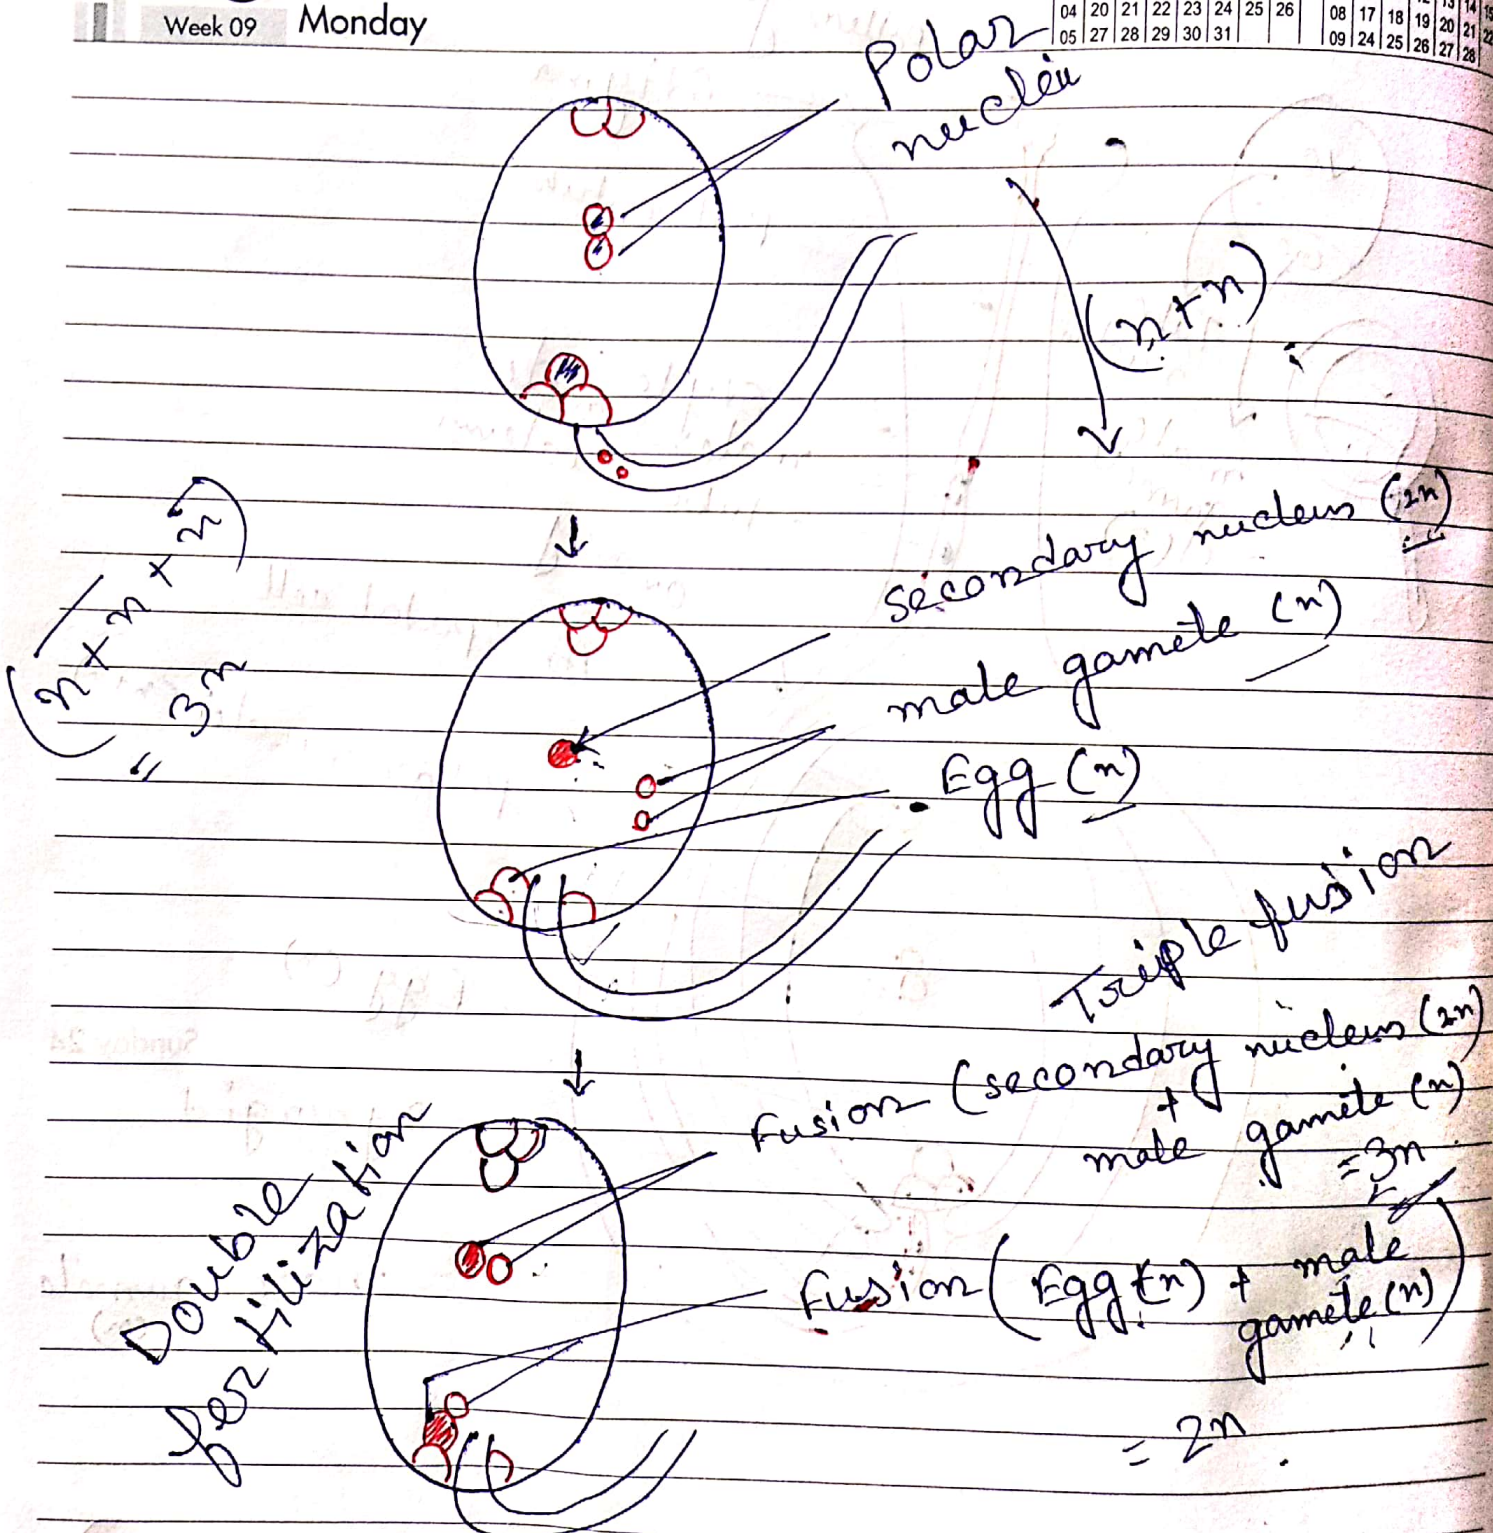 Week 09 Monday
04 20 21 22 23 24 25 26
05 27 28 29 30 31
08 17 18 19 20 21 22
09 24 25 26 27 28
Polar
nucleii
(n+n)
secondary nucleus (2n)
male gamete (n)
Egg (n)
(n+n+n)
= 3n
Triple fusion
Fusion (secondary nucleus (2n)
+
male gamete (n)
=3n
Double
fertilization
Fusion (Egg (n) + male
gamete (n))
= 2n
Sunday 24